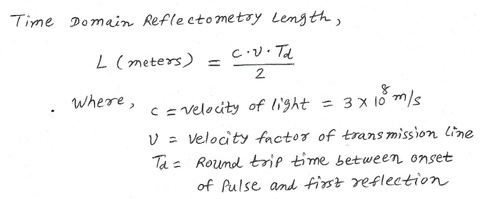 Time Domain Reflectometry Length,
L (meters) = c·υ·Td / 2
. Where, c = velocity of light = 3 x 10^8 m/s
υ = Velocity factor of transmission line
Td = Round trip time between onset
of Pulse and first reflection